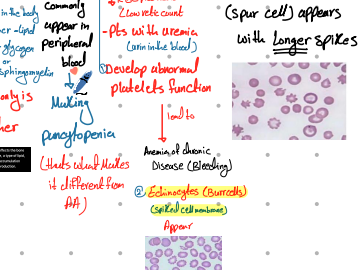 in the body
er - lipid
- glycogen
or
sphingomyelin
only is
her
commonly
appear in
peripheral
blood
Making
pancytopenia
(that's what makes
it different from
AA)
Low retic count
- Pts with uremia
(urin in the blood)
① Develop abnormal
platelets function
lead to
Anemia of chronic
Disease (Bleeding)
② Echinocytes (Burr cells)
(spiked cell membrane)
Appear
(spur cell) appears
with Longer spikes